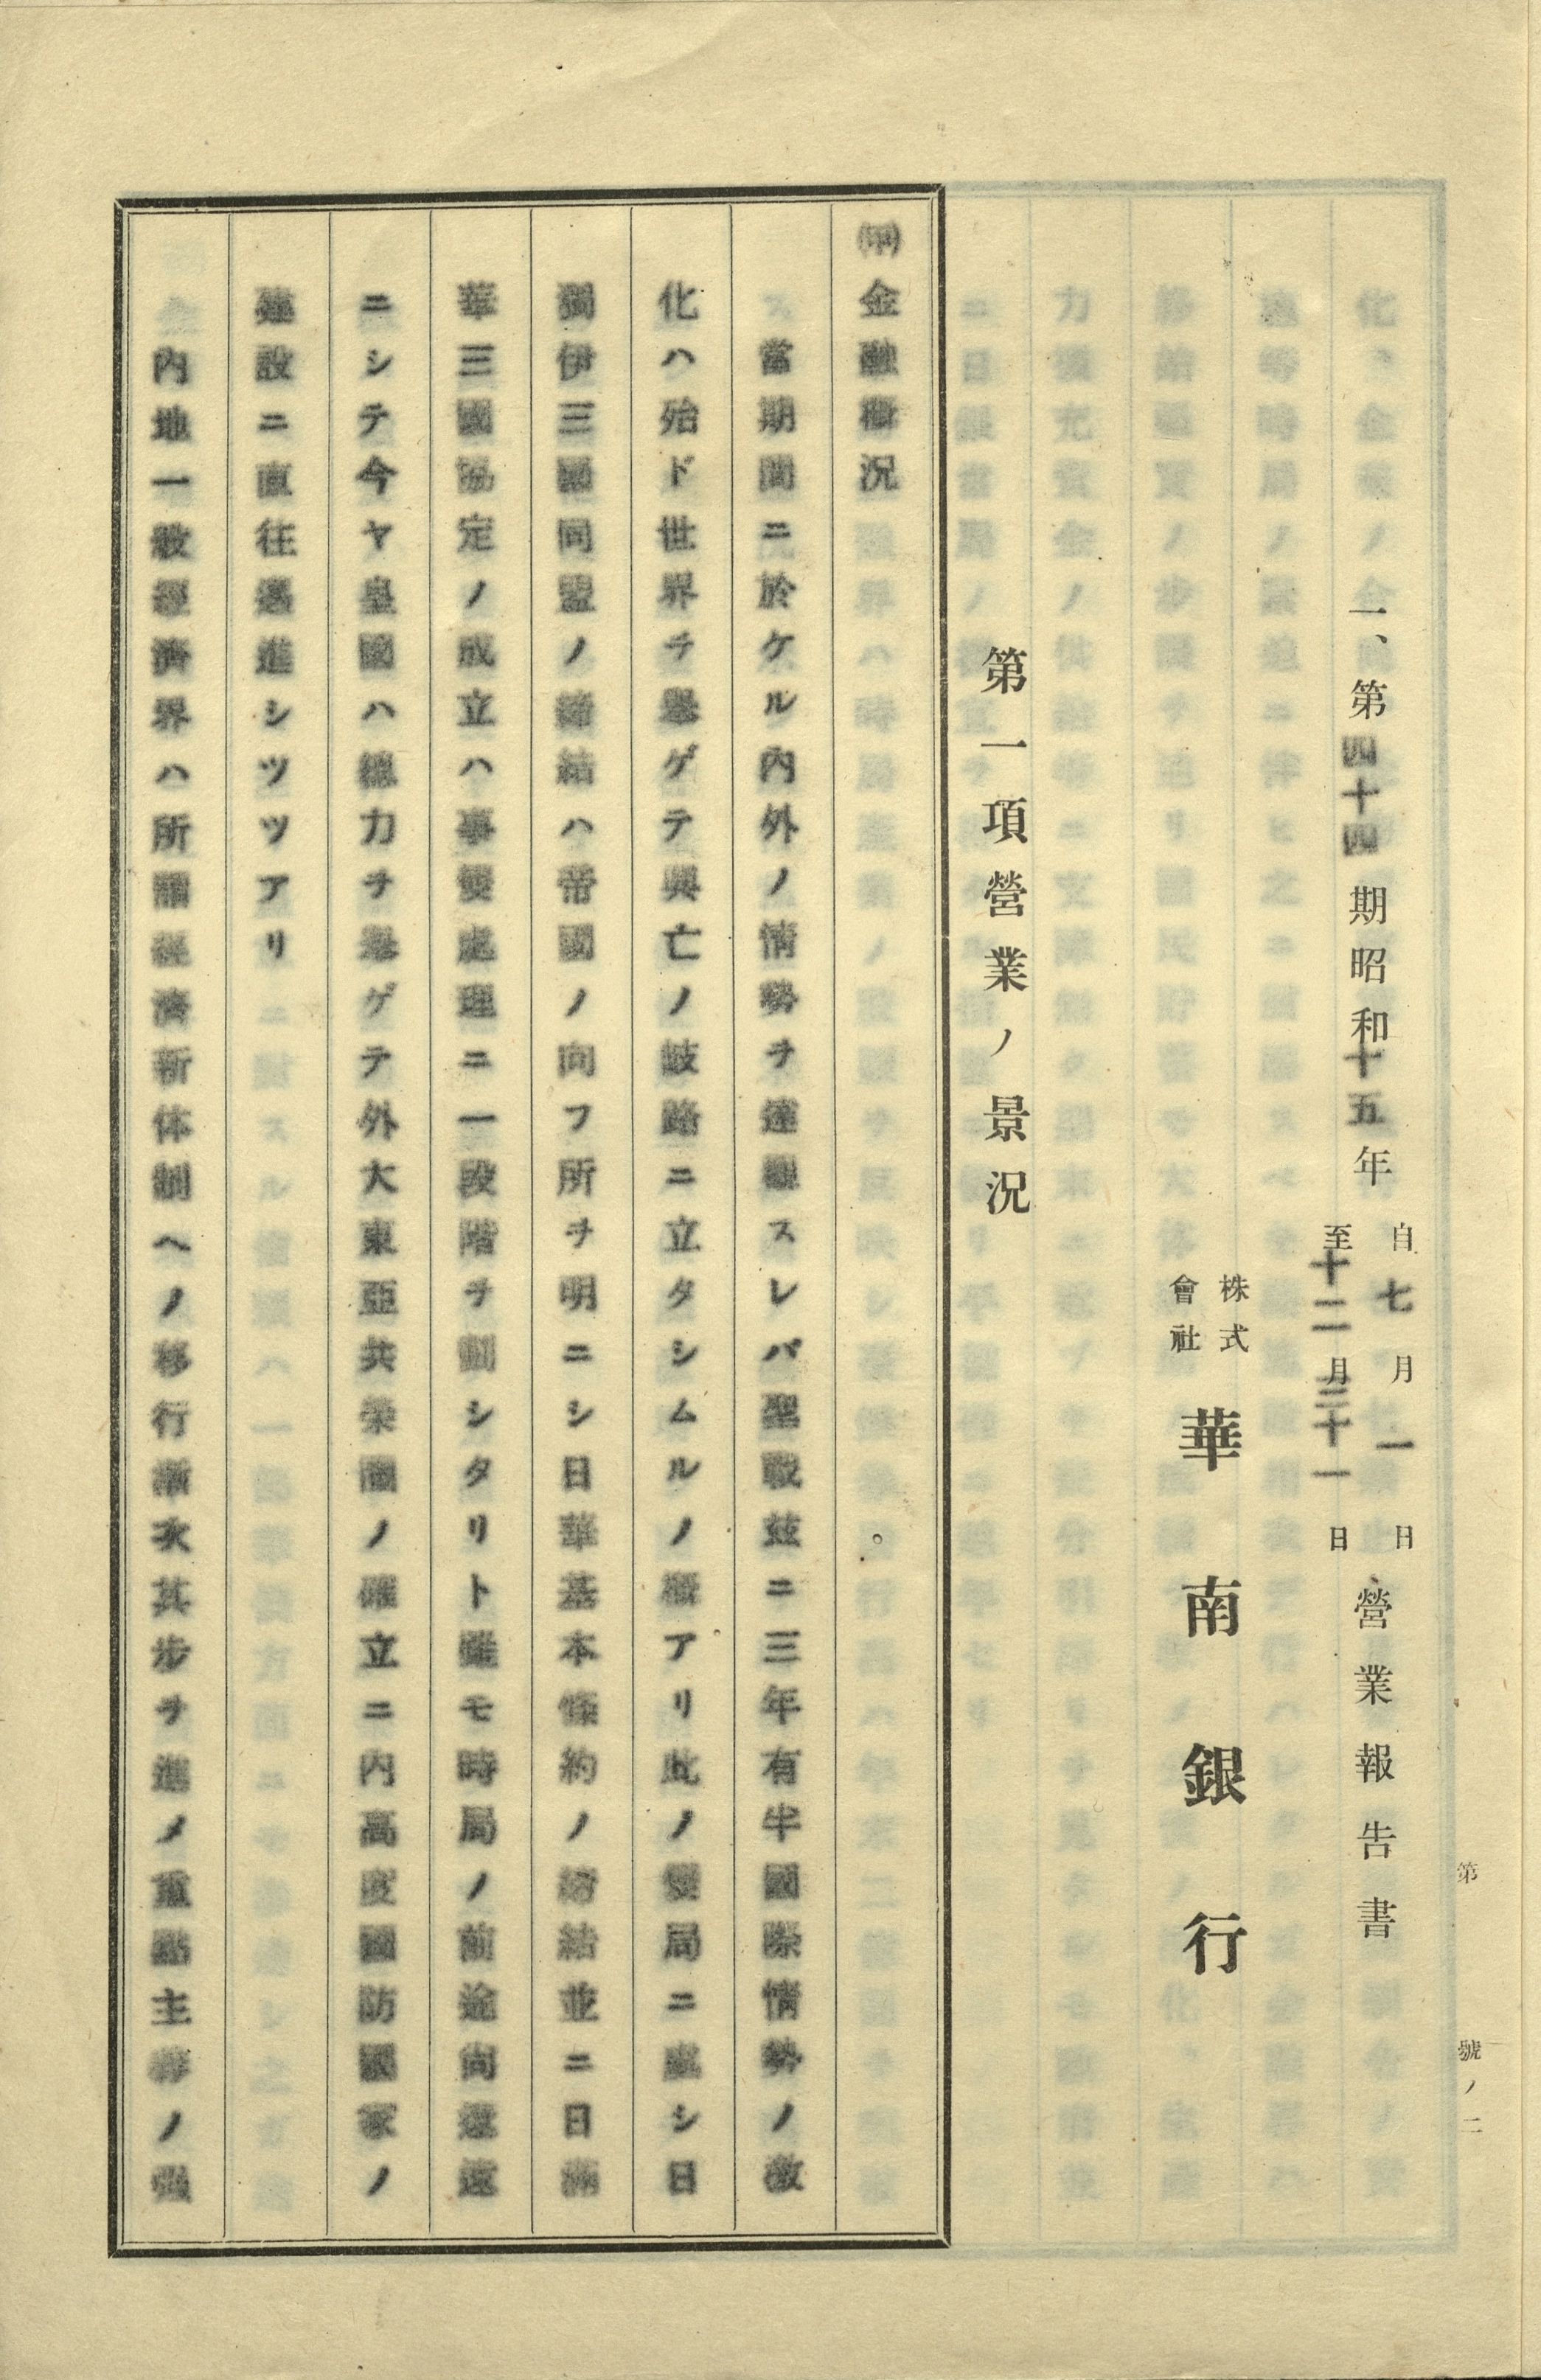 第 號ノ二
一、第四十四期昭和十五年自七月一日至十二月三十一日營業報告書
株式會社華南銀行
第一項營業ノ景況
㈣金融概況
當期間ニ於ケル內外ノ情勢ヲ連觀スレバ聖戰玆ニ三年有半國際情勢ノ激
化ハ殆ド世界ヲ擧ゲテ興亡ノ岐路ニ立タシムルノ槪アリ此ノ變局ニ處シ日
獨伊三國同盟ノ締結ハ帝國ノ向フ所ヲ明ニシ日華基本條約ノ締結並ニ日滿
華三國協定ノ成立ハ事變處理ニ一段階ヲ劃シタリト雖モ時局ノ前途尙遼遠
ニシテ今ヤ皇國ハ總力ヲ擧ゲテ外大東亞共榮圈ノ確立ニ內高度國防國家ノ
建設ニ直往邁進シツツアリ
內地一般經濟界ハ所謂經濟新体制ヘノ移行漸次其步ヲ進メ重點主義ノ强